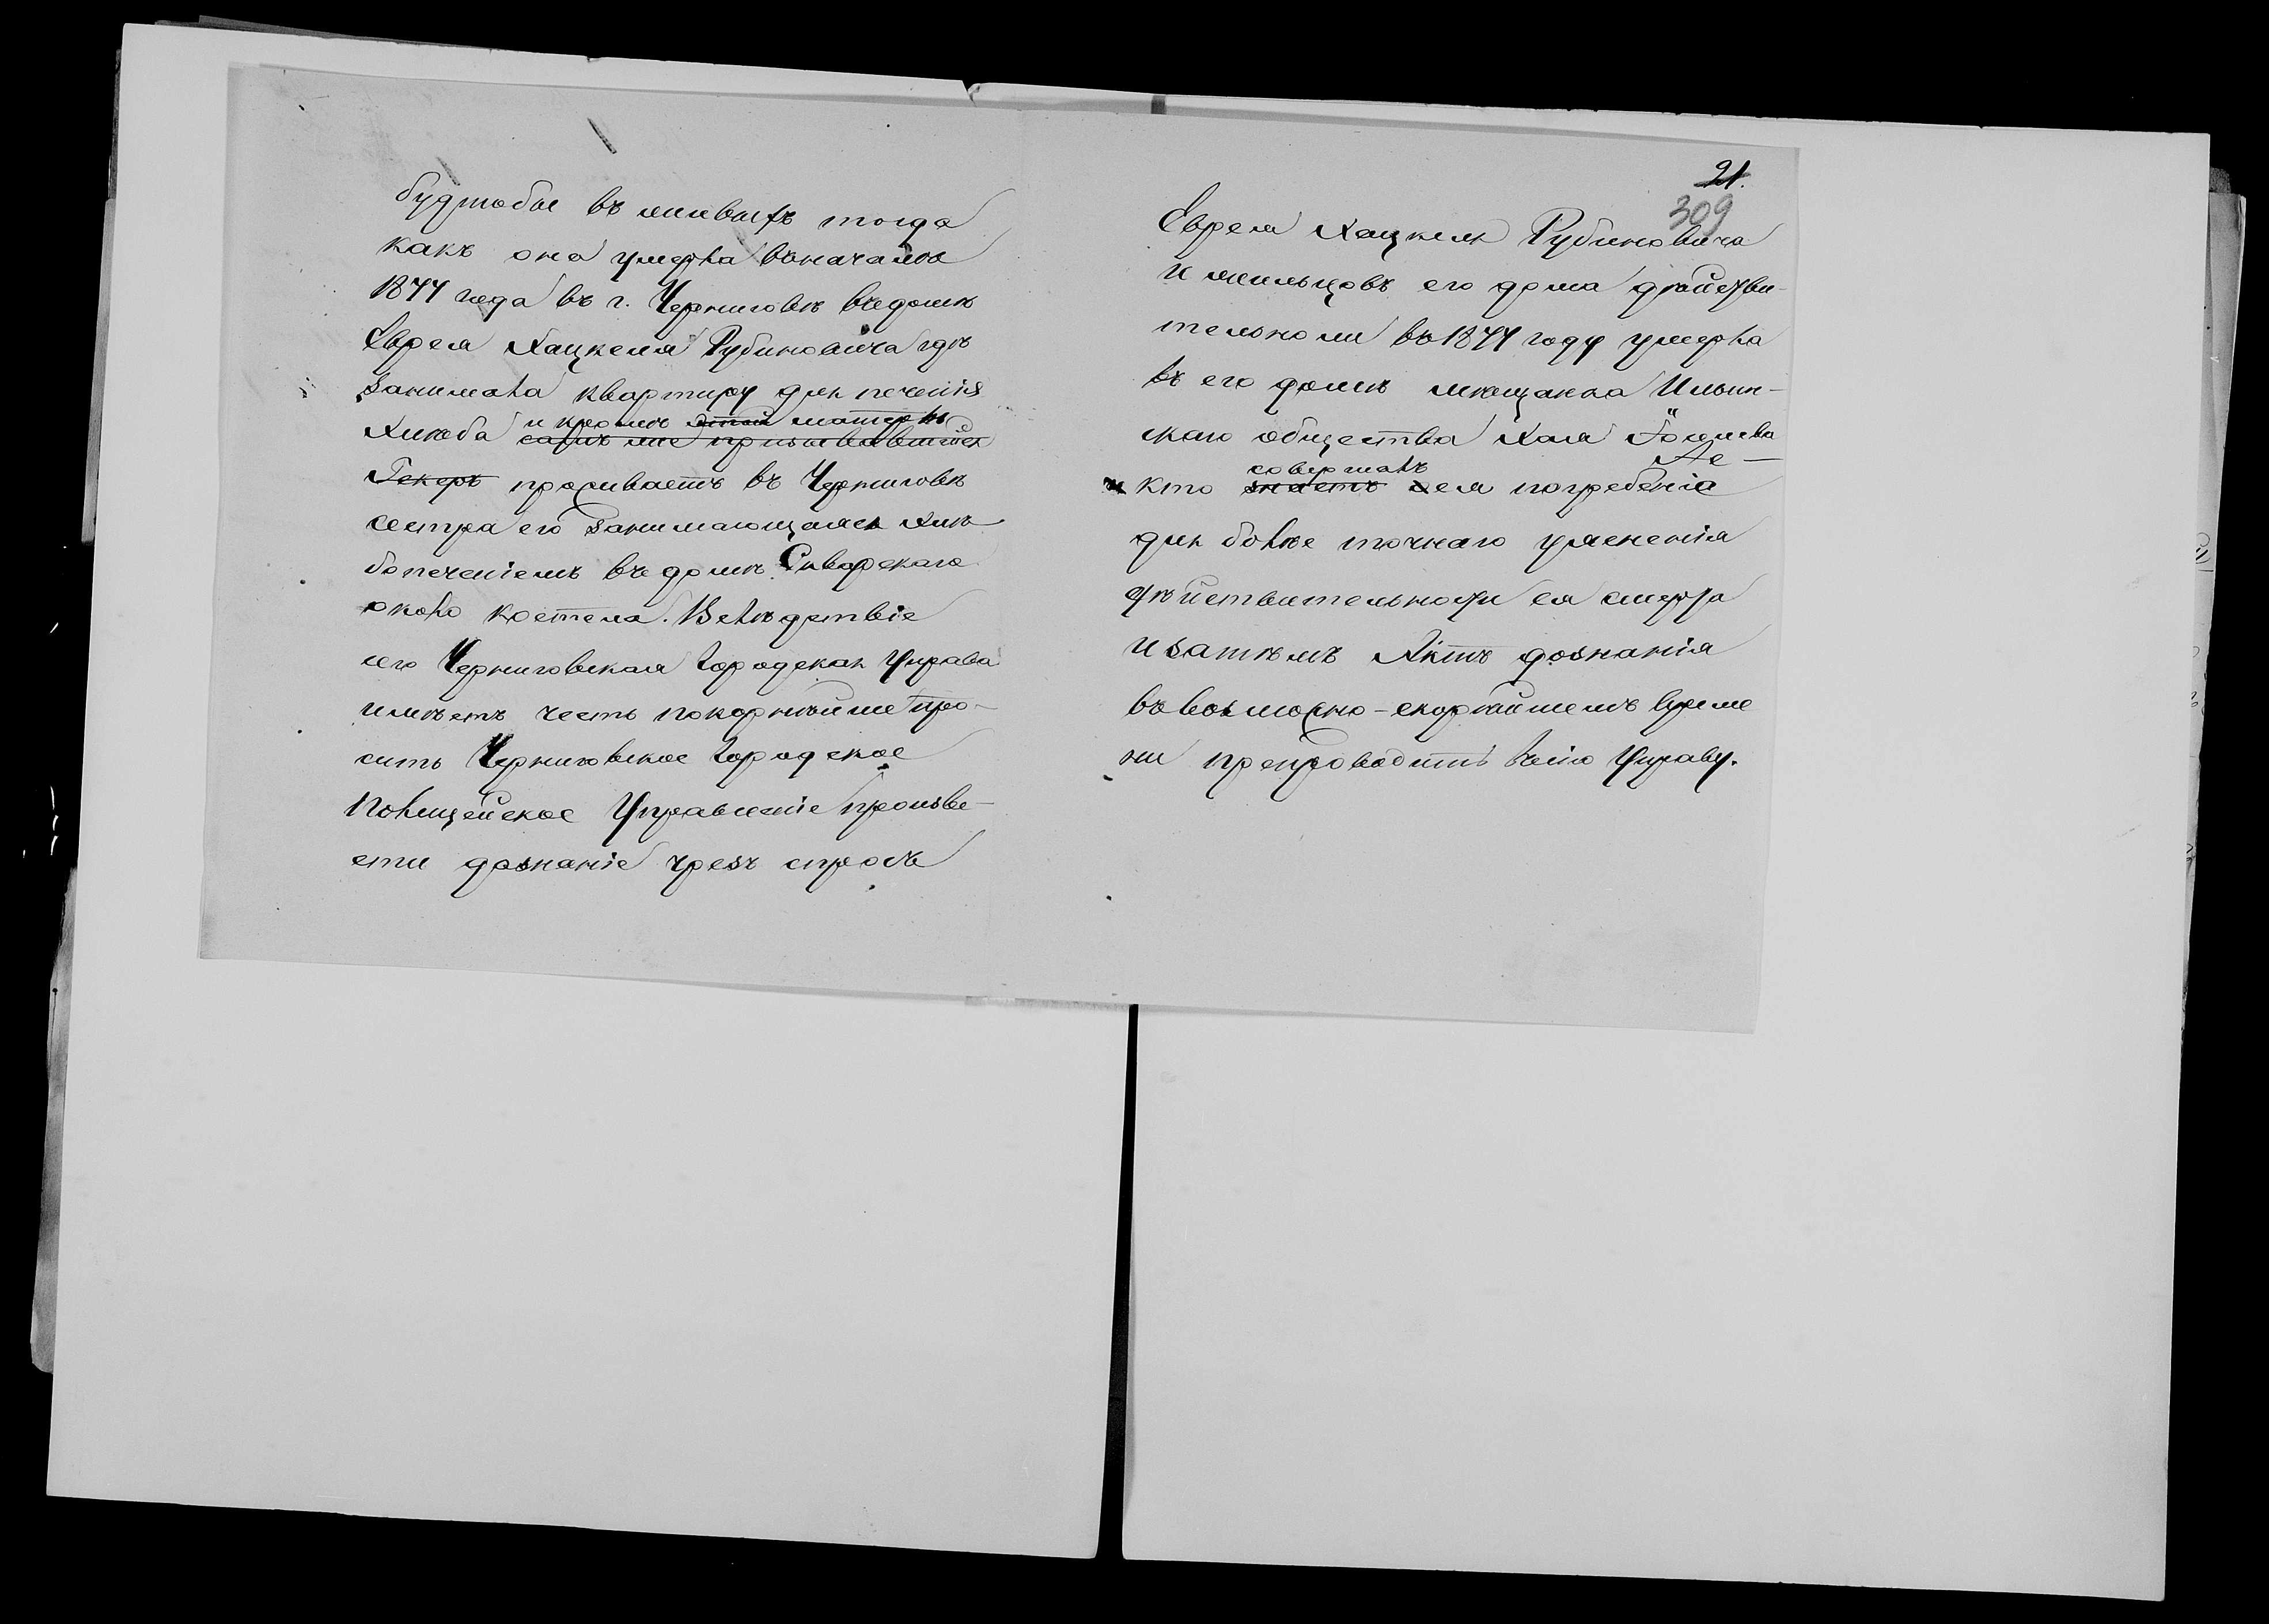 будтобы въ живыхъ тогда
какъ она умерла вначалѣ
1877 года въ г. Черниговѣ вдомѣ
Еврея Хацкеля Рубиновича гдѣ
занимала квартиру для печенія
Хлѣба и кромѣ этой матери
самъ же проживавшей
Гекеръ проживаетъ въ Черниговѣ
сестра его занимающаяся хлѣ-
бопеченіемъ въ домѣ Сиварскаго
около костела. Вслѣдствіе
сего Черниговская Городская Управа
имѣетъ честь покорнѣйше про-
сить Черниговское Городское
Полицейское Управленіе произве-
сти дознаніе чрезъ спросъ
21.
309
Еврея Хацкеля Рубиновича
и жильцовъ его дома дѣйстви-
тельноли въ 1877 году умерла
въ его домѣ мѣщанка Ильин-
скаго общества Хая
и кто совершалъ знаетъ ея погребеніе
для болѣе точнаго уясненія
дѣйствительности ея смерти
изатѣмъ Актъ дознанія
въ возможно-скорѣйшемъ време
ни препроводить всію Управу.